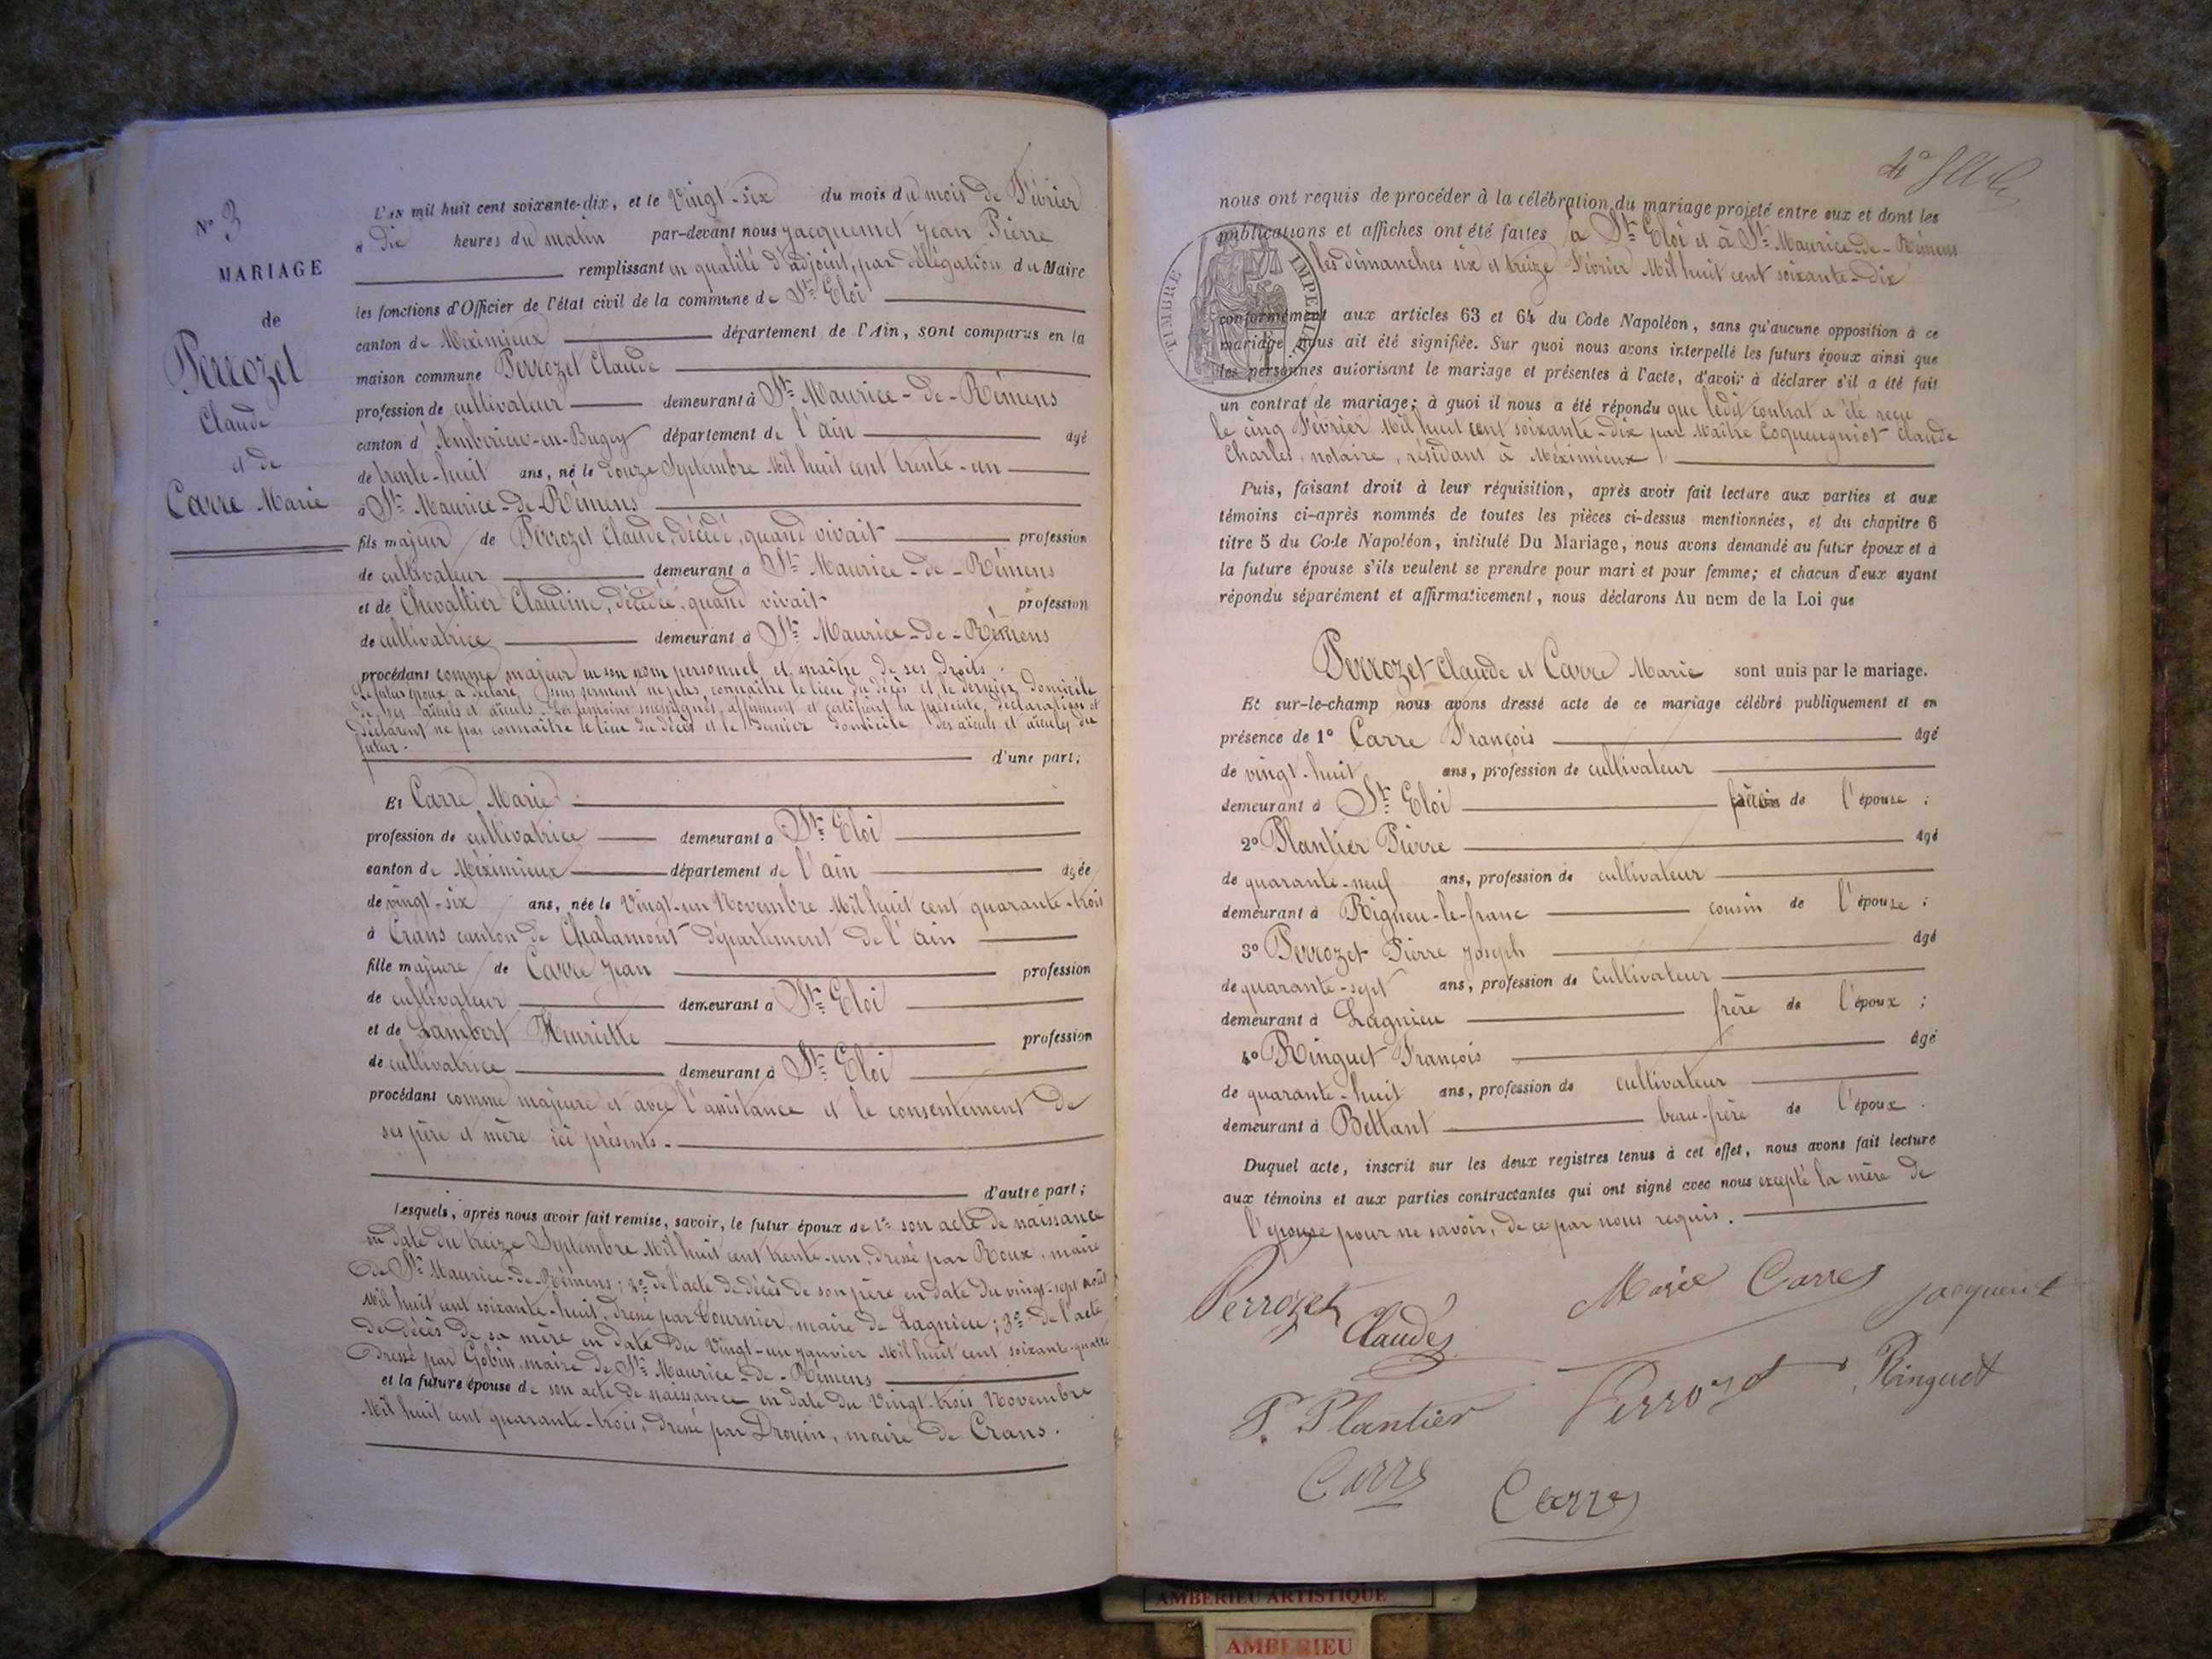 N° 3
MARIAGE
de
Perrozet
Claude
et de
Carre Marie
L'AN mil huit cent soixante-dix, et le Vingt-six du mois du mois de Février
à Dix heures du matin par-devant nous Jacquemet Jean Pierre
remplissant en qualité d'adjoint, par délégation du Maire
les fonctions d'Officier de l'état civil de la commune de St Eloi
canton de Méximieux département de l'Ain, sont comparus en la
maison commune Perrozet Claude
profession de cultivateur demeurant à St Maurice-de-Rémens
canton d'Ambérieu-en-Bugey département de l'ain âgé
de trente-huit ans, né le Douze Septembre Mil huit cent trente-un
à St Maurice-de-Rémens
fils majeur de Perrozet Claude, décédé, quand vivait profession
de cultivateur demeurant à St Maurice-de-Rémens
et de Chevallier Claudine, décédée, quand vivait profession
de cultivatrice demeurant à St Maurice-de-Rémens
procédant comme majeur en son nom personnel et maître de ses droits.
Le futur époux a déclaré sous serment ne plus connaître le lieu du décès et le dernier domicile
de ses aïeuls et aïeules. Les témoins soussignés affirment et certifient la présente déclaration et
déclarent ne pas connaître le lieu du décès et le dernier domicile des aïeuls et aïeules du
futur.
d'une part;
Et Carre Marie
profession de cultivatrice demeurant à St Eloi
canton de Méximieux département de l'ain âgée
de vingt-six ans, née le Vingt-un Novembre Mil huit cent quarante-trois
à Crans canton de Chalamont département de l'ain
fille majeure de Carre Jean profession
de cultivateur demeurant à St Eloi
et de Lambert Henriette profession
de cultivatrice demeurant à St Eloi
procédant comme majeure et avec l'assistance et le consentement de
ses père et mère ici présents.
d'autre part;
Lesquels, après nous avoir fait remise, savoir, le futur époux de 1° son acte de naissance
en date du treize Septembre Mil huit cent trente-un, dressé par Roux, maire
de St Maurice-de-Rémens; 2° de l'acte de décès de son père en date du vingt-sept août
Mil huit cent soixante-huit, dressé par Tournier, maire de Lagnieu; 3° de l'acte
de décès de sa mère en date du Vingt-un Janvier Mil huit cent soixante-quatre
dressé par Gobin, maire de St Maurice-de-Rémens
et la future épouse de son acte de naissance en date du Vingt-trois Novembre
Mil huit cent quarante-trois, dressé par Drouin, maire de Crans.
nous ont requis de procéder à la célébration du mariage projeté entre eux et dont les
publications et affiches ont été faites à St Eloi et à St Maurice-de-Rémens
les dimanches six et treize Février Mil huit cent soixante-dix
TIMBRE IMPERIAL
conformément aux articles 63 et 64 du Code Napoléon, sans qu'aucune opposition à ce
mariage nous ait été signifiée. Sur quoi nous avons interpellé les futurs époux ainsi que
les personnes autorisant le mariage et présentes à l'acte, d'avoir à déclarer s'il a été fait
un contrat de mariage; à quoi il nous a été répondu que ledit contrat a été reçu
le cinq Février Mil huit cent soixante-dix par Maître Coqueugniot Claude
Charles, notaire, résidant à Méximieux
Puis, faisant droit à leur réquisition, après avoir fait lecture aux parties et aux
témoins ci-après nommés de toutes les pièces ci-dessus mentionnées, et du chapitre 6
titre 5 du Code Napoléon, intitulé Du Mariage, nous avons demandé au futur époux et à
la future épouse s'ils veulent se prendre pour mari et pour femme; et chacun d'eux ayant
répondu séparément et affirmativement, nous déclarons Au nom de la Loi que
Perrozet Claude et Carre Marie sont unis par le mariage.
Et sur-le-champ nous avons dressé acte de ce mariage célébré publiquement et en
présence de 1° Carre François âgé
de vingt-huit ans, profession de cultivateur
demeurant à St Eloi frère de l'épouse;
2° Plantier Pierre âgé
de quarante-neuf ans, profession de cultivateur
demeurant à Rigneu-le-franc cousin de l'épouse;
3° Perrozet Pierre Joseph âgé
de quarante-sept ans, profession de cultivateur
demeurant à Lagnieu frère de l'époux;
4° Ringuet François âgé
de quarante-huit ans, profession de cultivateur
demeurant à Bettant beau-frère de l'époux.
Duquel acte, inscrit sur les deux registres tenus à cet effet, nous avons fait lecture
aux témoins et aux parties contractantes qui ont signé avec nous excepté la mère de
l'épouse pour ne savoir, de ce par nous requis.
Perrozet Claude Marie Carre Jacquemet
P. Plantier Perrozet Ringuet
Carre Carre
AMBERIEU ARTISTIQUE
AMBERIEU